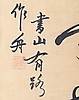 書山有路
作舟